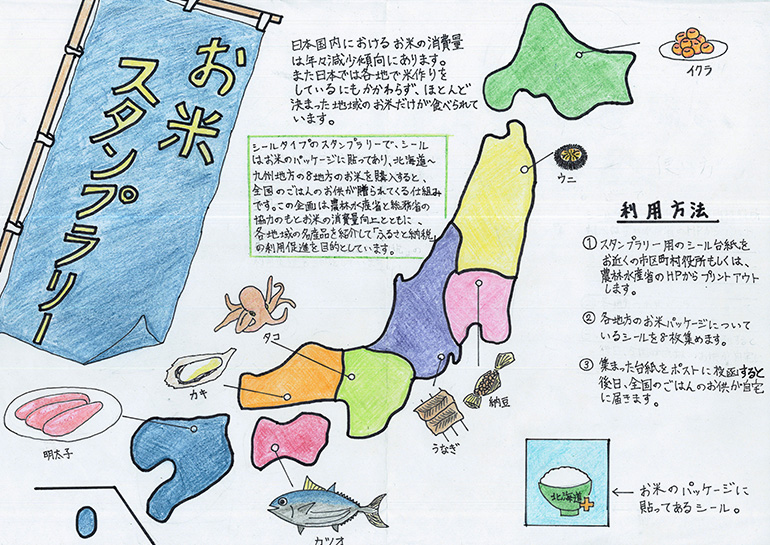 お米
スタンプラリー
日本国内におけるお米の消費量
は年々減少傾向にあります。
また日本では各地で米作りを
しているにもかかわらず、ほとんど
決まった地域のお米だけが食べられて
います。
シールタイプのスタンプラリーで、シール
はお米のパッケージに貼ってあり、北海道〜
九州地方の8地方のお米を購入すると、
全国のごはんのお供が贈られてくる仕組み
です。この企画は農林水産省と総務省の
協力のもとお米の消費量向上とともに、
各地域の名産品を紹介して「ふるさと納税」
の利用促進を目的としています。
イクラ
ウニ
タコ
カキ
明太子
カツオ
うなぎ
納豆
利用方法
① スタンプラリー用のシール台紙を
お近くの市区町村役所もしくは、
農林水産省のHPからプリントアウト
します。
② 各地方のお米パッケージについて
いるシールを8枚集めます。
③ 集まった台紙をポストに投函すると
後日、全国のごはんのお供が自宅
に届きます。
北海道
← お米のパッケージに
貼ってあるシール。